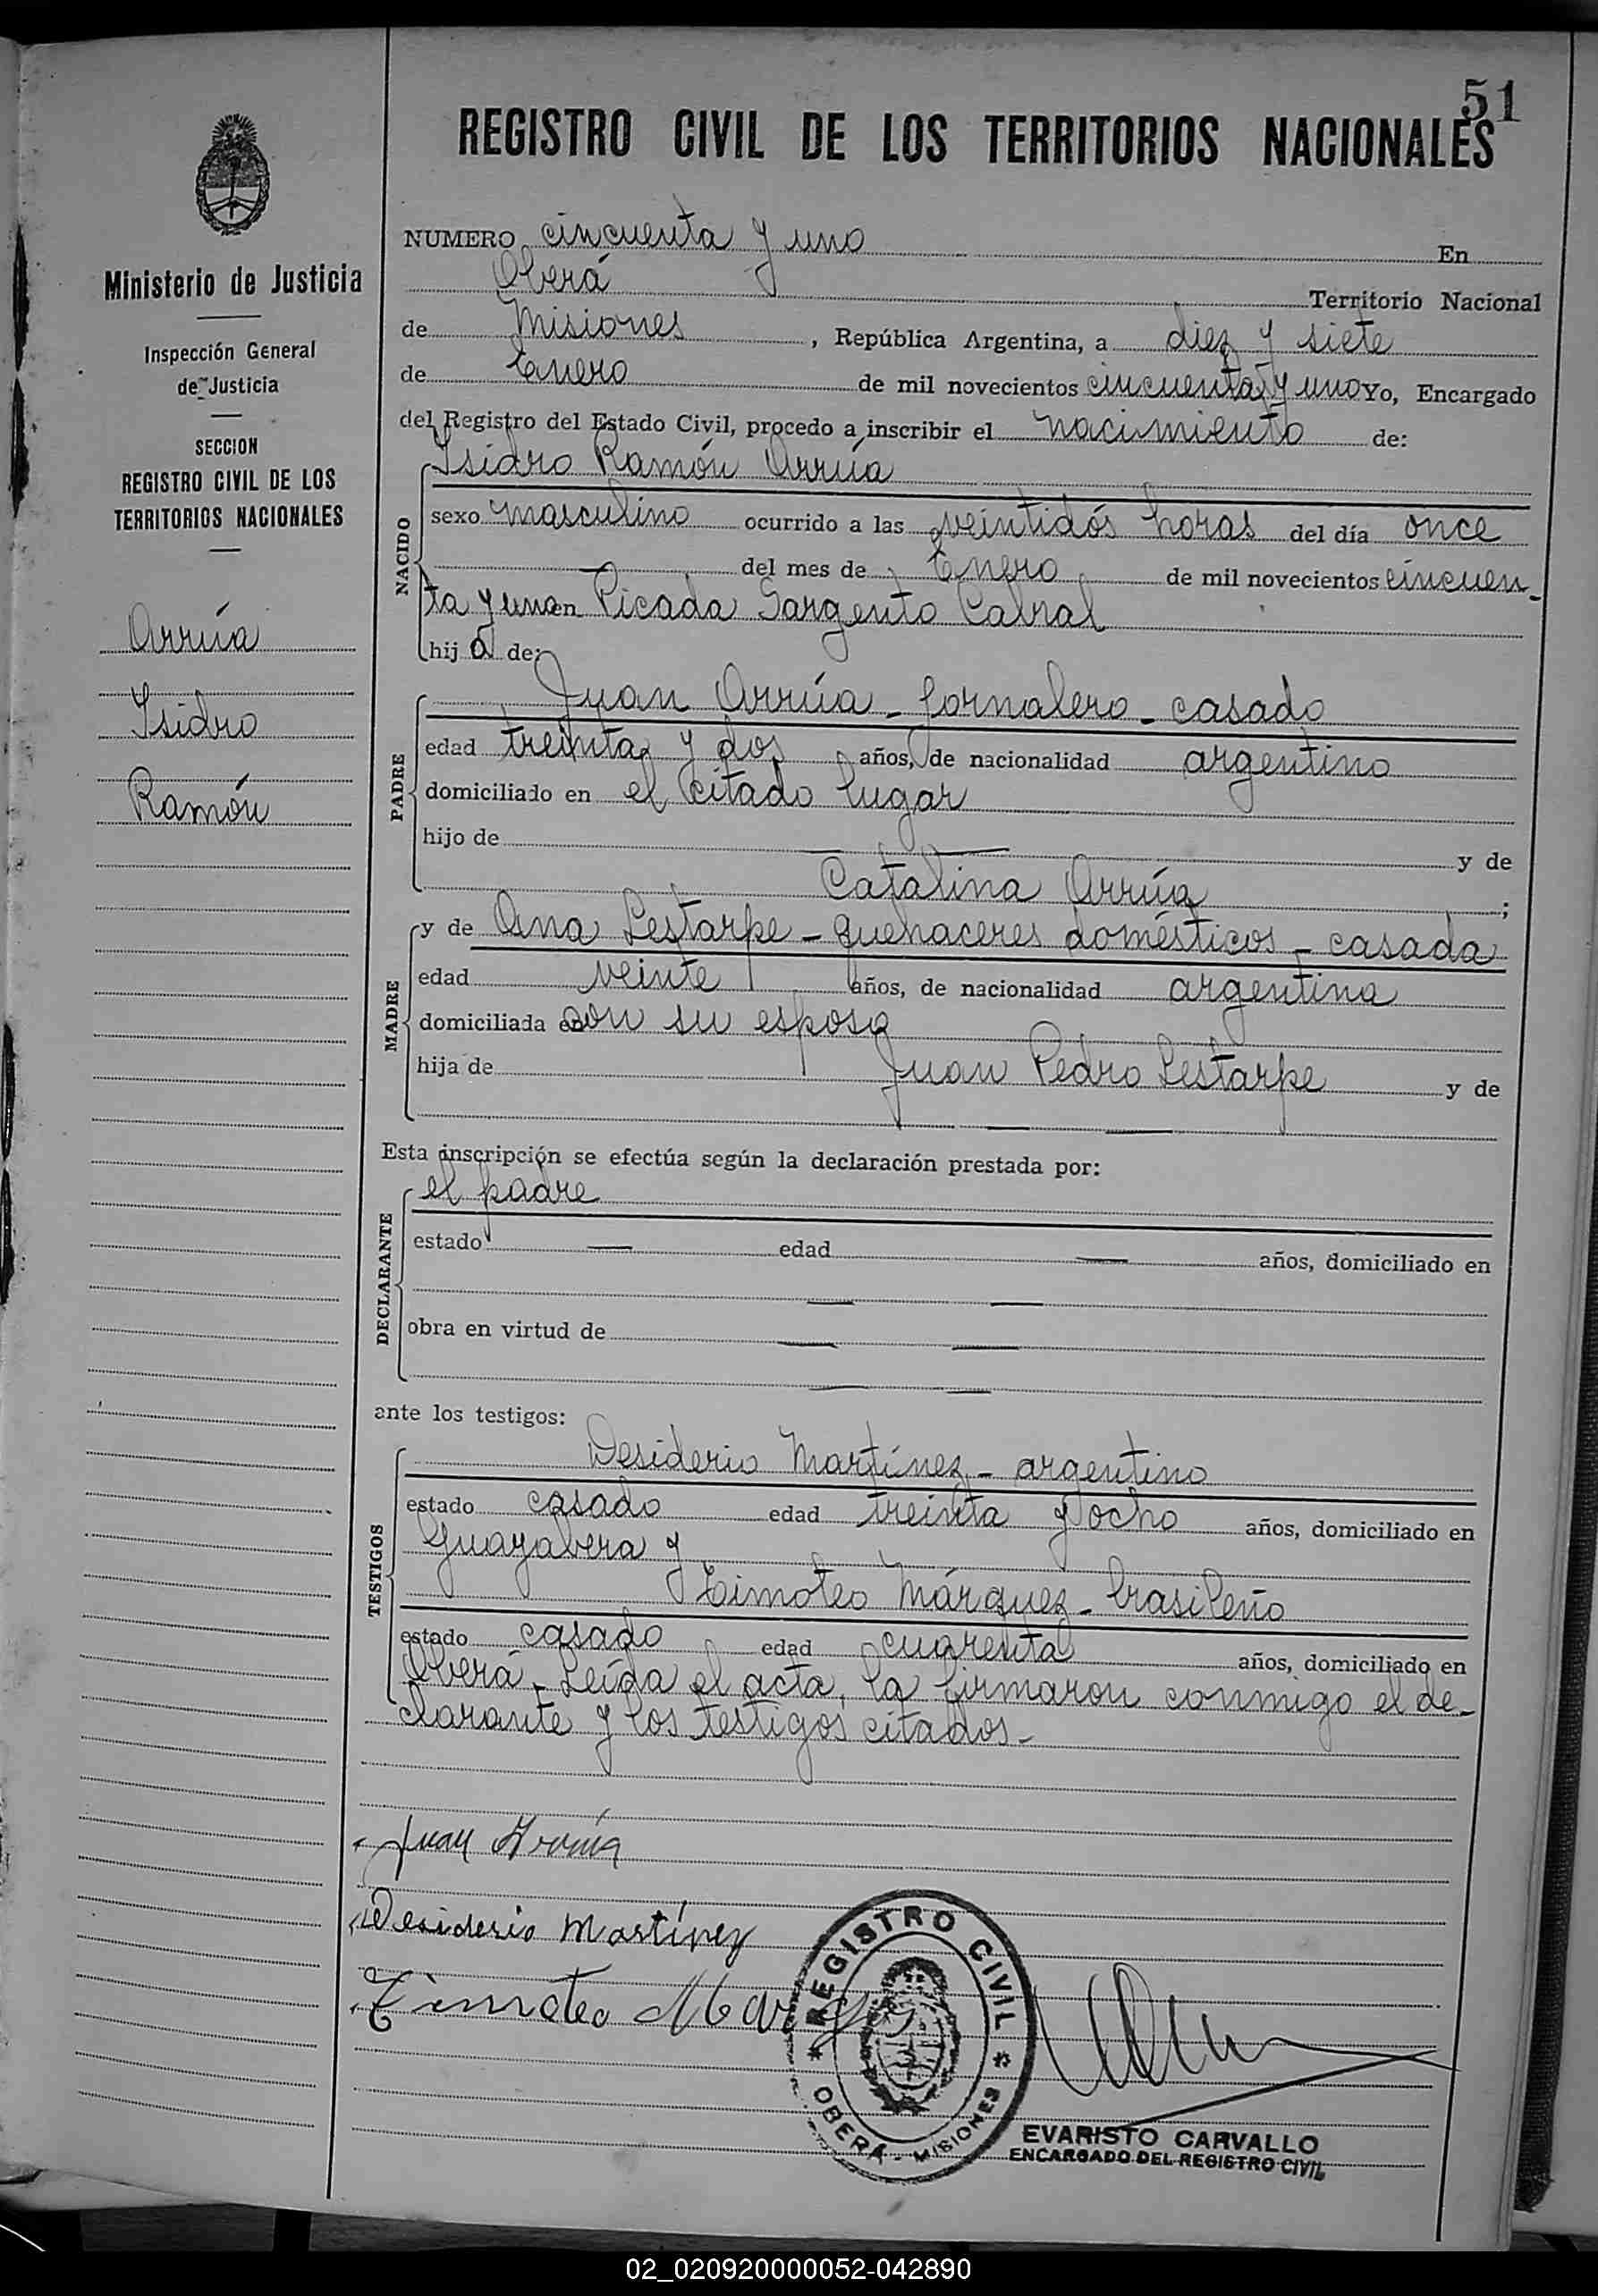 51
REGISTRO CIVIL DE LOS TERRITORIOS NACIONALES
Ministerio de Justicia
Inspección General
de Justicia
SECCION
REGISTRO CIVIL DE LOS
TERRITORIOS NACIONALES
Arrúa
Isidro
Ramón
NUMERO cincuenta y uno En
Oberá Territorio Nacional
de Misiones, República Argentina, a diez y siete
de Enero de mil novecientos cincuenta y uno Yo, Encargado
del Registro del Estado Civil, procedo a inscribir el nacimiento de:
NACIDO
Isidro Ramón Arrúa
sexo masculino ocurrido a las veintidós horas del día once
del mes de Enero de mil novecientos cincuen-
ta y uno en Picada Sargento Cabral
hij o de:
PADRE
Juan Arrúa - Jornalero - casado
edad treinta y dos años, de nacionalidad argentino
domiciliado en el citado lugar
hijo de — — y de
Catalina Arrúa ;
MADRE
y de Ana Lestarpe - quehaceres domésticos - casada
edad veinte años, de nacionalidad argentina
domiciliada en con su esposo
hija de Juan Pedro Lestarpe y de
— —
Esta inscripción se efectúa según la declaración prestada por:
DECLARANTE
el padre
estado — edad — años, domiciliado en
— —
obra en virtud de — —
— —
ante los testigos:
TESTIGOS
Desiderio Martínez - argentino
estado casado edad treinta y ocho años, domiciliado en
Guayabera y
Timoteo Márquez - brasileño
estado casado edad cuarenta años, domiciliado en
Oberá - Leída el acta, la firmaron conmigo el de-
clarante y los testigos citados -
Juan Arrúa
Desiderio Martínez
Timoteo
REGISTRO CIVIL
OBERÁ - MISIONES
EVARISTO CARVALLO
ENCARGADO DEL REGISTRO CIVIL
02_020920000052-042890